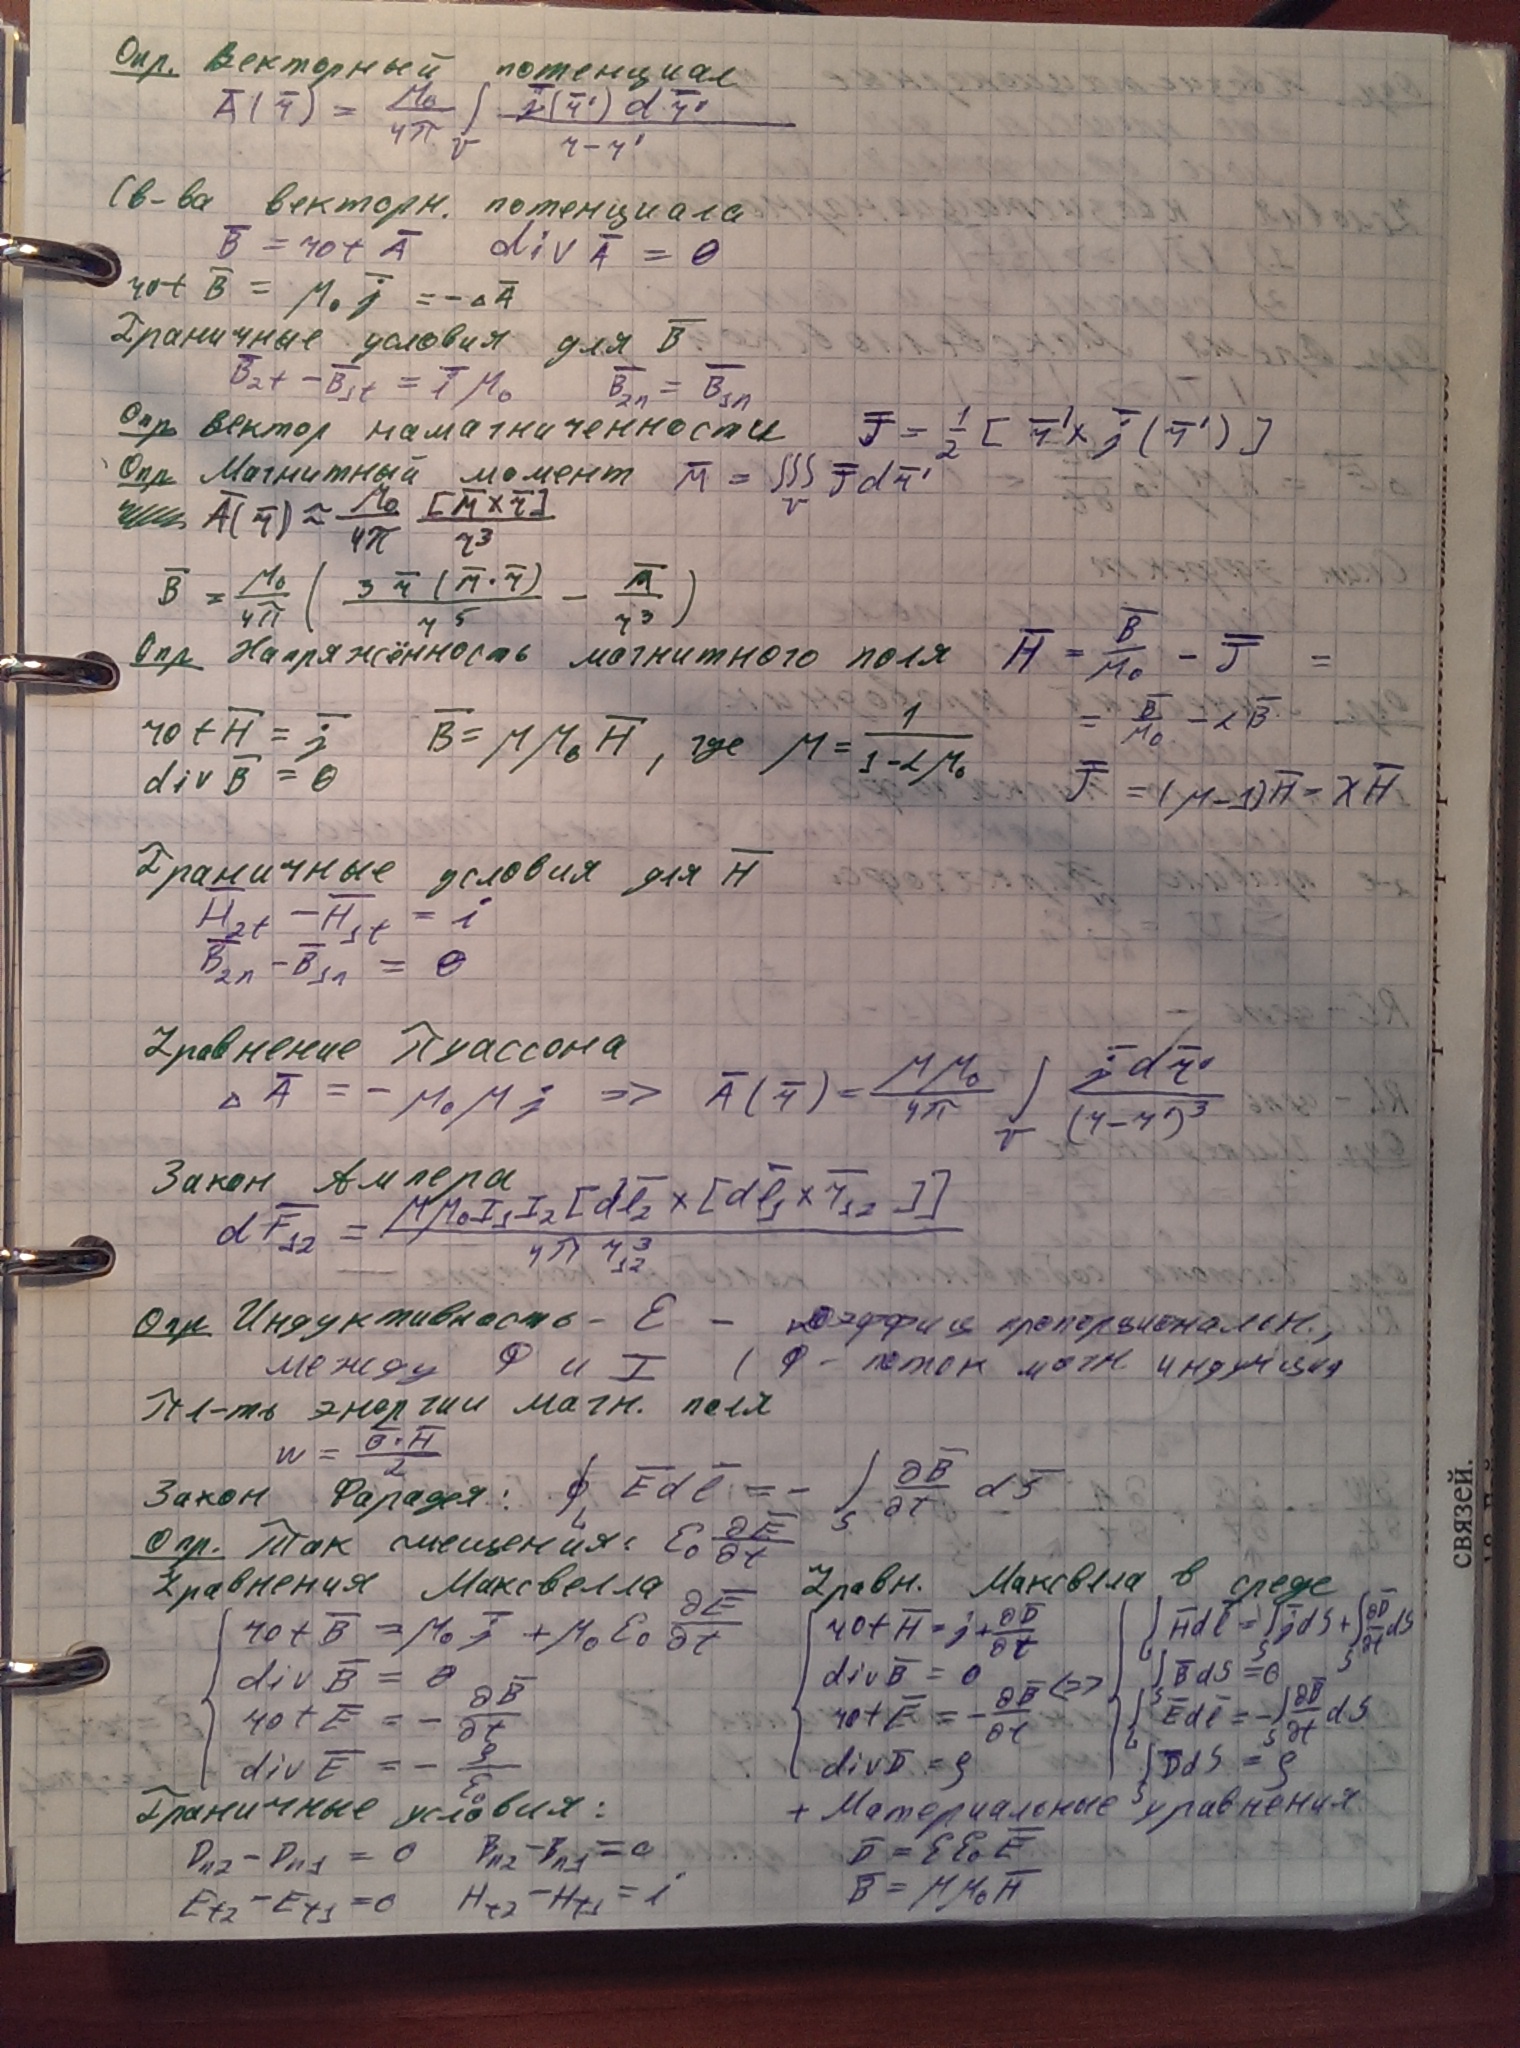 Опр. Векторный потенциал
A̅(r̅) = μ₀/4π ∫_V j̅(r̅') d r̅' / r-r'
Св-ва векторн. потенциала
B̅ = rot A̅ div A̅ = 0
rot B̅ = μ₀ j̅ = -△A̅
Граничные условия для B̅
B̅₂t - B̅₁t = i̅ μ₀ B̅₂n = B̅₁n
Опр вектор намагниченности J̅ = 1/2 [ r̅' × j̅ (r̅') ]
Опр Магнитный момент M̅ = ∭_V J̅ d r̅'
A̅(r̅) ≈ μ₀/4π [M̅×r̅]/r³
B̅ = μ₀/4π ( 3 r̅ (M̅·r̅)/r⁵ - M̅/r³ )
Опр Напряжённость магнитного поля H̅ = B̅/μ₀ - J̅ =
= B̅/μ₀ - αB̅
rot H̅ = j̅ B̅ = μμ₀ H̅ , где μ = 1/(1-αμ₀)
div B̅ = 0 J̅ = (μ-1)H̅ = χH̅
Граничные условия для H̅
H̅₂t - H̅₁t = i
B̅₂n - B̅₁n = 0
Уравнение Пуассона
△ A̅ = - μ₀ μ j̅ => A̅(r̅) = μμ₀/4π ∫_V j̅ d r̅' / (r-r')³
Закон Ампера
dF̅₁₂ = μμ₀I₁I₂[dl̅₂ × [dl̅₁ × r̅₁₂ ]] / 4π r₁₂³
Опр Индуктивность - ℰ - коэффиц пропорциональн.,
между Φ и I ( Φ - поток магн индукция
Пл-ть энергии магн. поля
w = B̅·H̅/2
Закон Фарадея: ∮_L E̅ dl̅ = - ∫_S ∂B̅/∂t dS̅
Опр. Ток смещения: ε₀ ∂E̅/∂t
Уравнения Максвелла Уравн. Максвелла в среде
rot B̅ = μ₀ j̅ + μ₀ ε₀ ∂E̅/∂t rot H̅ = j + ∂D̅/∂t ∫_L H̅dl̅ = ∫_S j̅dS + ∫_S ∂D̅/∂t dS
div B̅ = 0 div B̅ = 0 <=> ∫_S B̅dS = 0
rot E̅ = - ∂B̅/∂t rot E̅ = - ∂B̅/∂t ∫_L E̅dl̅ = -∫_S ∂B̅/∂t dS
div E̅ = - ρ/ε₀ div D̅ = ρ ∫_S D̅dS = ρ
Граничные условия: + Материальные уравнения
Dn2 - Dn1 = 0 Bn2 - Bn1 = 0 D̅ = εε₀ E̅
Et2 - Et1 = 0 Ht2 - Ht1 = i B̅ = μμ₀H̅
связей.